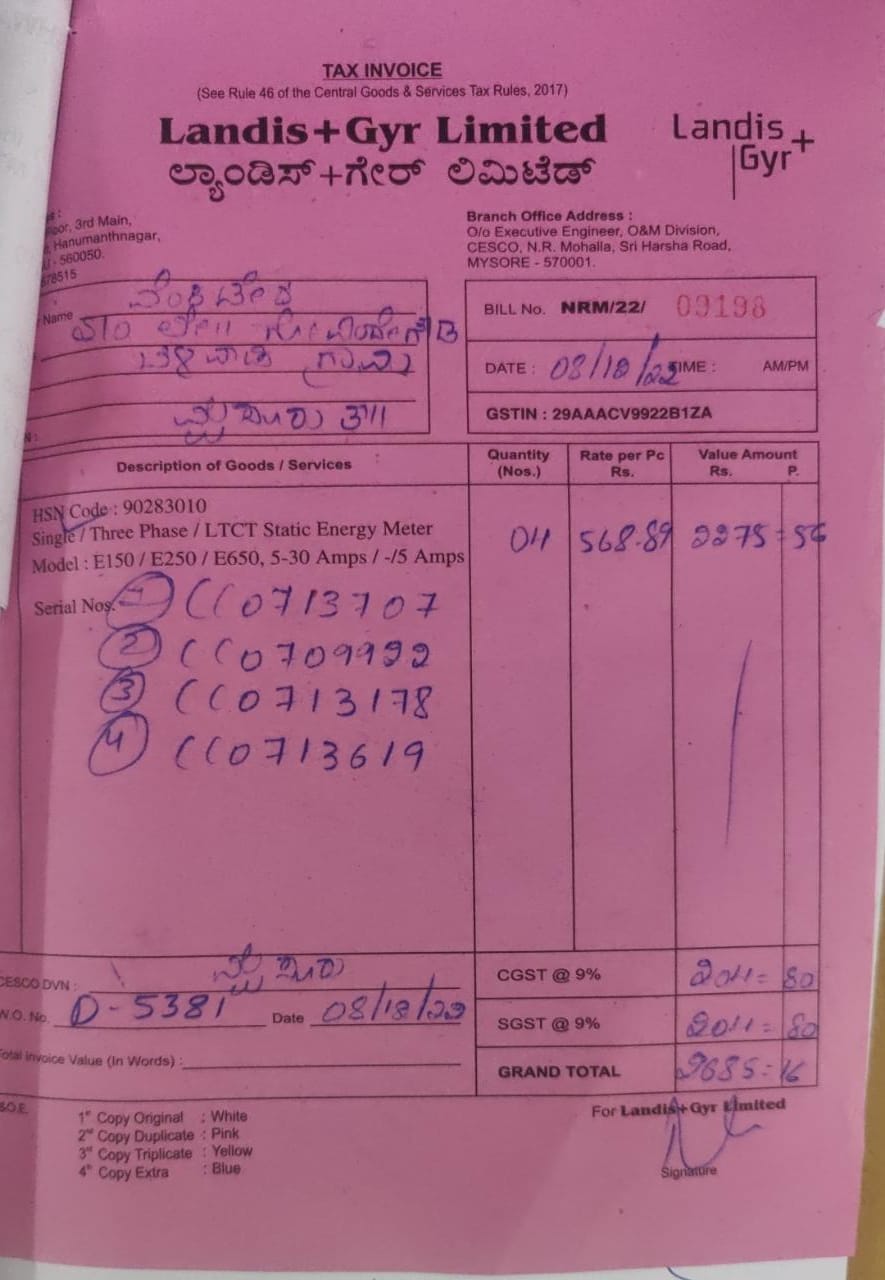 TAX INVOICE
(See Rule 46 of the Central Goods & Services Tax Rules, 2017)
Landis+Gyr Limited
ಲ್ಯಾಂಡಿಸ್+ಗೇರ್ ಲಿಮಿಟೆಡ್
Landis
Gyr+
3rd Main,
Hanumanthnagar,
- 560050.
78515
Branch Office Address :
O/o Executive Engineer, O&M Division,
CESCO, N.R. Mohalla, Sri Harsha Road,
MYSORE - 570001.
Name
BILL No. NRM/22/ 09198
DATE : TIME : AM/PM
GSTIN : 29AAACV9922B1ZA
Description of Goods / Services
Quantity (Nos.)
Rate per Pc Rs.
Value Amount Rs. P.
HSN Code : 90283010
Single / Three Phase / LTCT Static Energy Meter
Model : E150 / E250 / E650, 5-30 Amps / -/5 Amps
04 568.89 2275=56
Serial Nos. 1 CC0713707
2 CC0709992
3 CC0713178
4 CC0713619
CESCO DVN :
W.O. No. D-5381 Date
Total Invoice Value (In Words) :
CGST @ 9% 204=80
SGST @ 9% 204=80
GRAND TOTAL 2685=16
1st Copy Original : White
2nd Copy Duplicate : Pink
3rd Copy Triplicate : Yellow
4th Copy Extra : Blue
For Landis+Gyr Limited
Signature